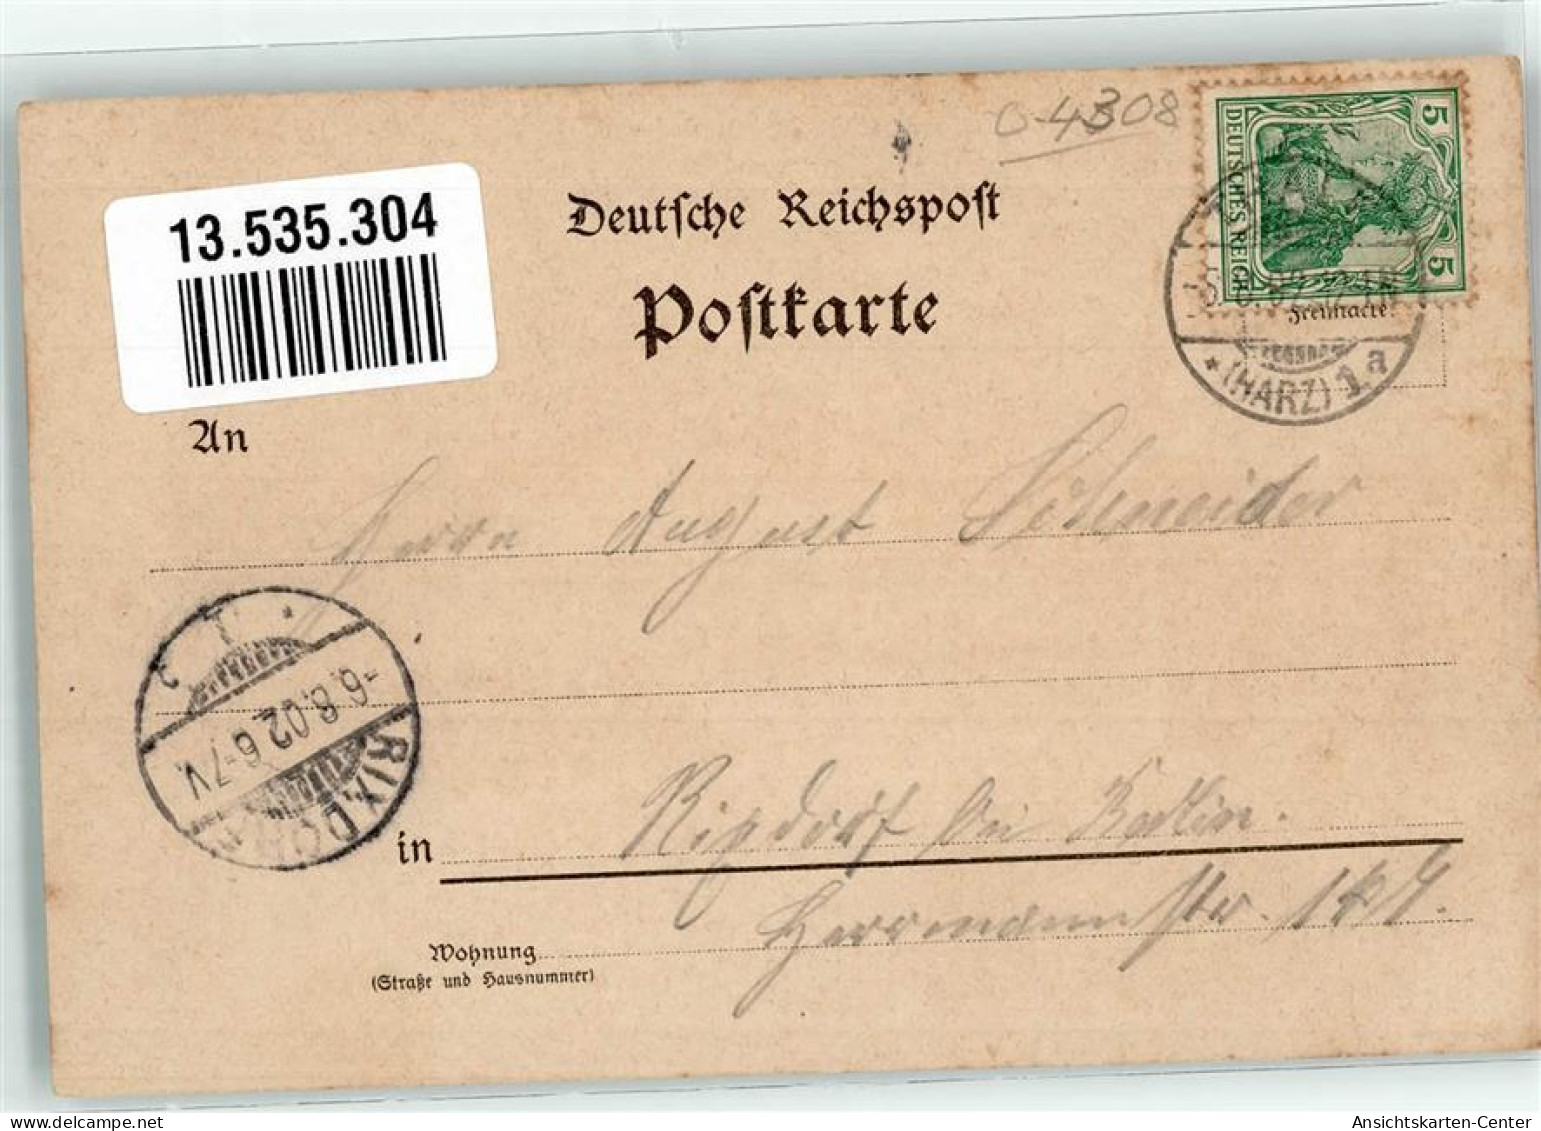 O-4308
13.535.304
Deutsche Reichspost
Postkarte
DEUTSCHES REICH
5
5
Freimarke.
(HARZ) 1.a
An
Herrn August Schneider
-6.8.02.6-7V.
RIXDORF
in Rixdorf bei Berlin.
Herrmannstr.
Wohnung
(Straße und Hausnummer)
Ansichtskarten-Center